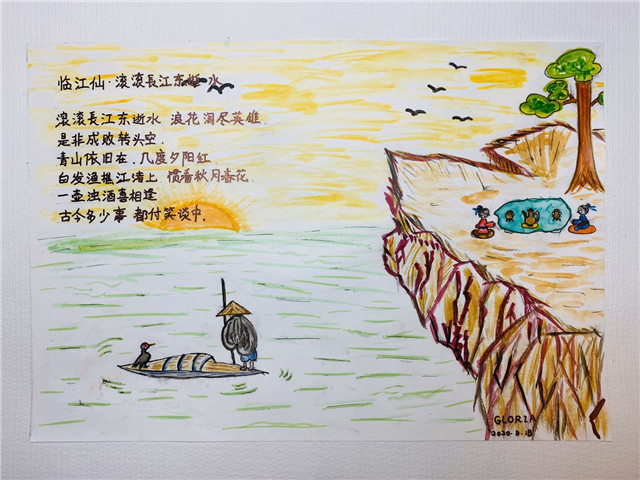 临江仙·滚滚長江东逝水
滚滚長江东逝水 浪花淘尽英雄
是非成败转头空
青山依旧在.几度夕阳红
白发渔樵江渚上 惯看秋月春花
一壶浊酒喜相逢
古今多少事 都付笑谈中.
GLORIA
2020.3.18